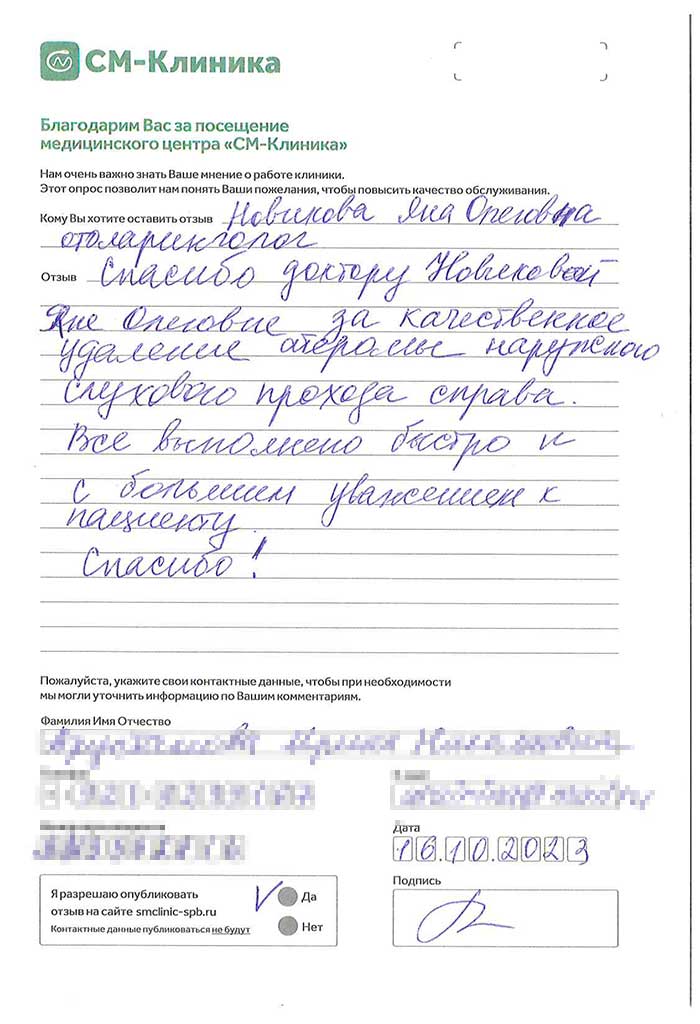 СМ-Клиника
Благодарим Вас за посещение
медицинского центра «СМ-Клиника»
Нам очень важно знать Ваше мнение о работе клиники.
Этот опрос позволит нам понять Ваши пожелания, чтобы повысить качество обслуживания.
Кому Вы хотите оставить отзыв Новикова Яна Олеговна
отоларинголог
Отзыв Спасибо доктору Новиковой
Яне Олеговне за качественное
удаление атеромы наружного
слухового прохода справа.
Все выполнено быстро и
с большим уважением к
пациенту.
Спасибо!
Пожалуйста, укажите свои контактные данные, чтобы при необходимости
мы могли уточнить информацию по Вашим комментариям.
Фамилия Имя Отчество
Дата
16.10.2023
Подпись
Я разрешаю опубликовать
отзыв на сайте smclinic-spb.ru
Контактные данные публиковаться не будут
Да
Нет